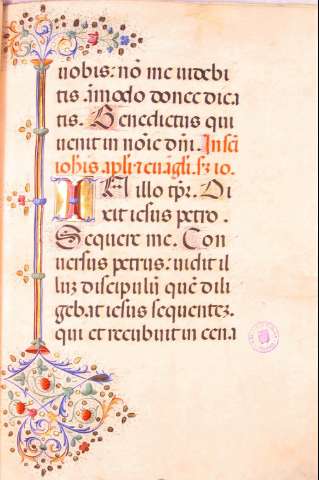 uobis: nõ me uidebi
tis. ãmodo donec dica
tis. Benedictus qui
uenit in noĩe dñi. In scĩ
iohĩs apľi ⁊ euãgľi. sž io.
IN illo tp̃r. Di
xit iesus petro.
Sequere me. Con
uersus petrus: uidit il
luz discipulũ quẽ dili
gebat iesus sequentez.
qui et recubuit in cena